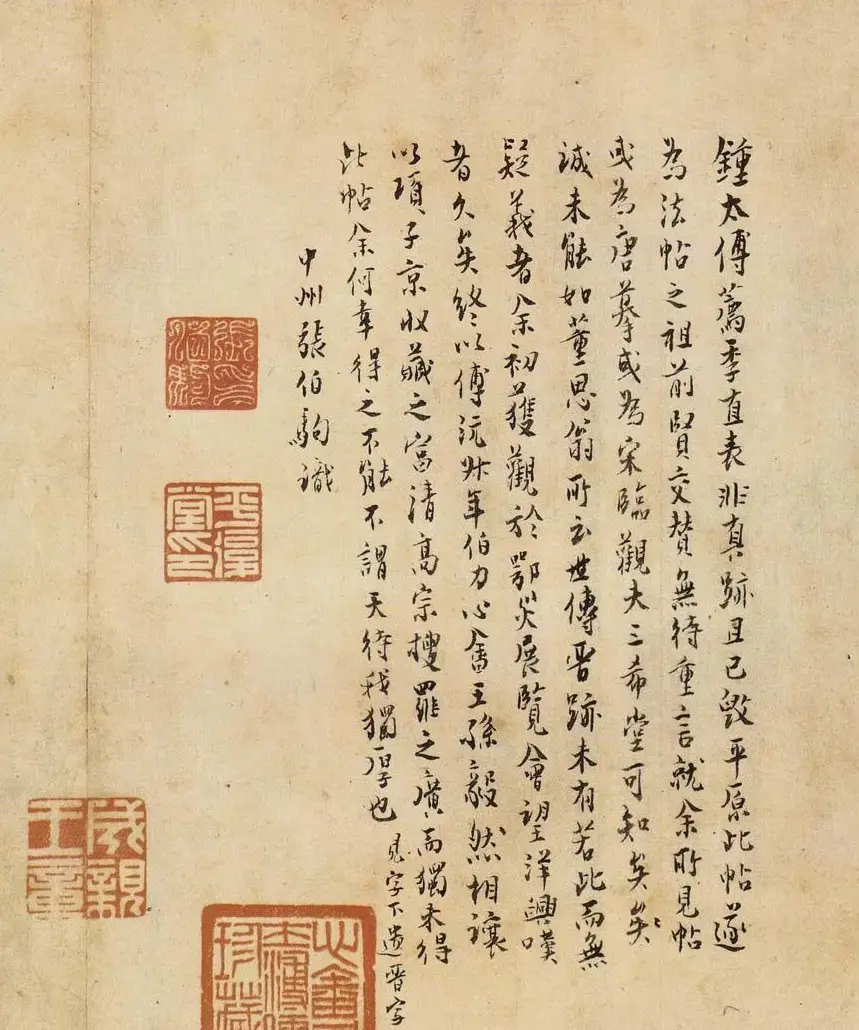 鍾太傅薦季直表非真跡且已毀平原此帖遂
為法帖之祖前賢交贊無待重言就余所見帖
或為唐摹或為宋臨觀夫三希堂可知矣矣
誠未能如董思翁所云世傳晉跡未有若此而無
疑義者余初獲觀於鄂災展覽會望洋興嘆
者久矣終以傅沅叔年伯力心畬王孫毅然相讓
以項子京收藏之富清高宗搜羅之廣而獨未得
此帖余何幸得之不能不謂天待我獨厚也
見字下遺晉字
中州張伯駒識
張印伯駒
平復堂印
成親王章